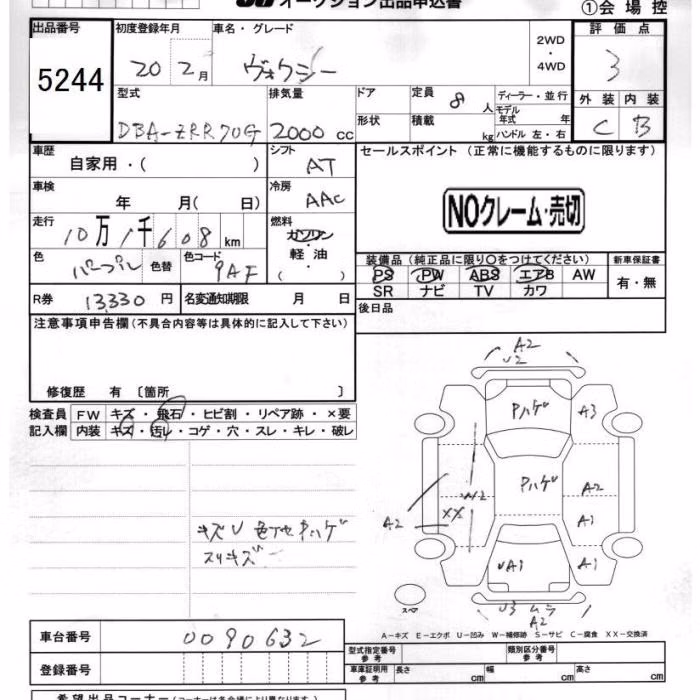 オークション出品申込書
①会場控
出品番号 初度登録年月 車名・グレード 2WD・4WD 評価点
5244 20 2月 ヴォクシー 3
型式 排気量 ドア 定員 8人 ディーラー・並行 外装 内装
DBA-ZRR70G 2000cc 形状 積載 kg モデル年式 年 ハンドル 左・右 C B
車歴 自家用・( ) シフト AT セールスポイント (正常に機能するものに限ります)
車検 年 月( 日) 冷房 AAC
NOクレーム・売切
走行 10万1千608km 燃料 ガソリン・軽油・( )
色 パープル 色替 色コード 9AF
装備品(純正品に限り○をつけてください) 新車保証書
PS PW ABS エアB AW 有・無
SR ナビ TV カワ
R券 13,330円 名変通知期限 月 日 後日品
注意事項申告欄(不具合内容等は具体的に記入して下さい)
修復歴 有 〔箇所 〕
検査員 FW キズ・飛石・ヒビ割・リペア跡・×要
記入欄 内装 キズ・汚レ・コゲ・穴・スレ・キレ・破レ
A2
U2
Pハゲ A3
Pハゲ A2
W2
A2 XX A1
UA1 A1
キズU 色アセ Pハゲ
スリキズ
スペア
U3 ムラ
A2
A-キズ E-エクボ U-凹み W-補修跡 S-サビ C-腐食 XX-交換済
車台番号 0090632
型式指定番号 参考 類別区分番号 参考
登録番号
車庫証明用 参考 長さ cm 幅 cm 高さ cm
希望出品コーナー(コーナー名は各会場により異なります。)